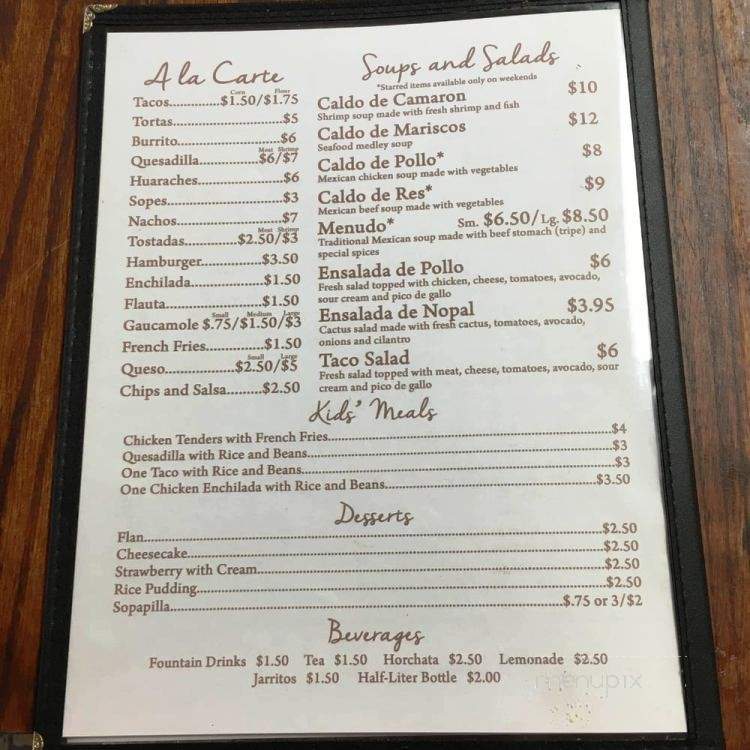 A la Carte
Corn Flour
Tacos..............$1.50/$1.75
Tortas..............................$5
Burrito.............................$6
Meat Shrimp
Quesadilla................$6/$7
Huaraches........................$6
Sopes................................$3
Nachos.............................$7
Meat Shrimp
Tostadas...............$2.50/$3
Hamburger.................$3.50
Enchilada....................$1.50
Flauta..........................$1.50
Small Medium Large
Gaucamole $.75/$1.50/$3
French Fries................$1.50
Small Large
Queso....................$2.50/$5
Chips and Salsa.........$2.50
Soups and Salads
*Starred items available only on weekends
Caldo de Camaron $10
Shrimp soup made with fresh shrimp and fish
Caldo de Mariscos $12
Seafood medley soup
Caldo de Pollo* $8
Mexican chicken soup made with vegetables
Caldo de Res* $9
Mexican beef soup made with vegetables
Menudo* Sm. $6.50/Lg. $8.50
Traditional Mexican soup made with beef stomach (tripe) and
special spices
Ensalada de Pollo $6
Fresh salad topped with chicken, cheese, tomatoes, avocado,
sour cream and pico de gallo
Ensalada de Nopal $3.95
Cactus salad made with fresh cactus, tomatoes, avocado,
onions and cilantro
Taco Salad $6
Fresh salad topped with meat, cheese, tomatoes, avocado, sour
cream and pico de gallo
Kids' Meals
Chicken Tenders with French Fries..............................$4
Quesadilla with Rice and Beans..............................$3
One Taco with Rice and Beans..............................$3
One Chicken Enchilada with Rice and Beans..............................$3.50
Desserts
Flan..............................$2.50
Cheesecake..............................$2.50
Strawberry with Cream..............................$2.50
Rice Pudding..............................$2.50
Sopapilla..............................$.75 or 3/$2
Beverages
Fountain Drinks $1.50 Tea $1.50 Horchata $2.50 Lemonade $2.50
Jarritos $1.50 Half-Liter Bottle $2.00
menupix